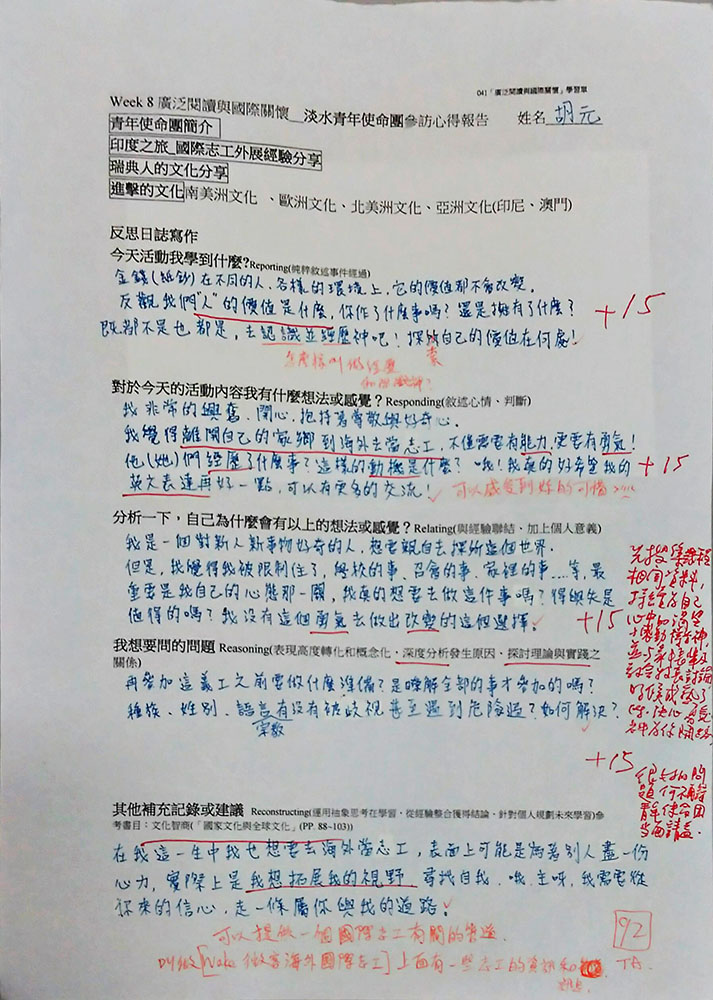 041「廣泛閱讀與國際關懷」學習單
Week 8 廣泛閱讀與國際關懷__淡水青年使命團參訪心得報告 姓名 胡元
青年使命團簡介
印度之旅_國際志工外展經驗分享
瑞典人的文化分享
進擊的文化南美洲文化、歐洲文化、北美洲文化、亞洲文化(印尼、澳門)
反思日誌寫作
今天活動我學到什麼?Reporting(純粹敘述事件經過)
金錢(紙鈔)在不同的人、各樣的環境上,它的價值都不會改變。
反觀我們"人"的價值是什麼,你作了什麼事嗎?還是擁有了什麼?
既都不是也都是,去認識並經歷神吧!探索自己的價值在何處!
+15
怎麼樣叫做經歷
對於今天的活動內容我有什麼想法或感覺?Responding(敘述心情、判斷)
我非常的興奮、開心,抱持著尊敬與好奇心。
我覺得離開自己的家鄉到海外去當志工,不僅需要有能力,需要有勇氣!
他(她)們經歷了什麼事?這樣的動機是什麼?哦!我真的好希望我的
+15
英文表達再好一點,可以有更多的交流!可以感受到妳的可惜
分析一下,自己為什麼會有以上的想法或感覺?Relating(與經驗聯結、加上個人意義)
我是一個對新人新事物好奇的人,想要親自去探所這個世界.
但是,我覺得我被限制住了,學校的事、召會的事、家裡的事……等,最
重要是我自己的心態那一關,我真的想要去做這件事嗎?得與失是
值得的嗎?我沒有這個勇氣去做出改變的這個選擇。
+15
先搜集課程
相同資料,
持定著自己
心中的渴望
我想要問的問題 Reasoning(表現高度轉化和概念化、深度分析發生原因、探討理論與實踐之
關係)
再參加這義工之前要做什麼準備?是瞭解全部的事才參加的嗎?
種族、姓別、語言有沒有被歧視甚至遇到危險過?如何解決?
宗教
+15
很好的問
題何不留言
青年使命團
當面請益.
其他補充記錄或建議 Reconstructing(運用抽象思考在學習,從經驗整合獲得結論、針對個人規劃未來學習)參
考書目:文化智商(「國家文化與全球文化」(PP. 88~103))
在我這一生中我也想要去海外當志工,表面上可能是為著別人盡一份
心力,實際上是我想拓展我的視野、尋找自我,哦,主呀,我需要從
祢來的信心,走一條屬祢與我的道路!
可以提供一個國際志工有關的管道.
叫做[Wake 微客海外國際志工]上面有一些志工的資訊和
92
TA.